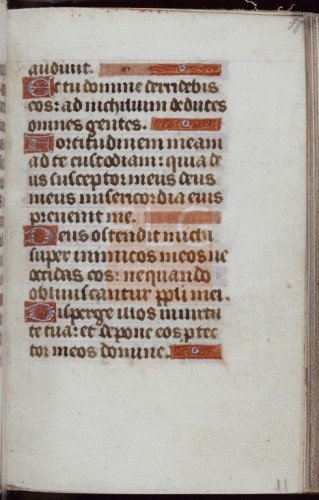 audiuit.
Et tu domine deridebis
eos: ad nichilum deduces
omnes gentes.
Fortitudinem meam
ad te custodiam: quia de
us susceptor meus deus
meus misericordia eius
preueniet me.
Deus ostendit michi
super inimicos meos ne
occidas eos: ne quando
obliuiscantur ppli mei.
Disperge illos in uirtu
te tua: et depone eos ptec
tor meos domine.
11